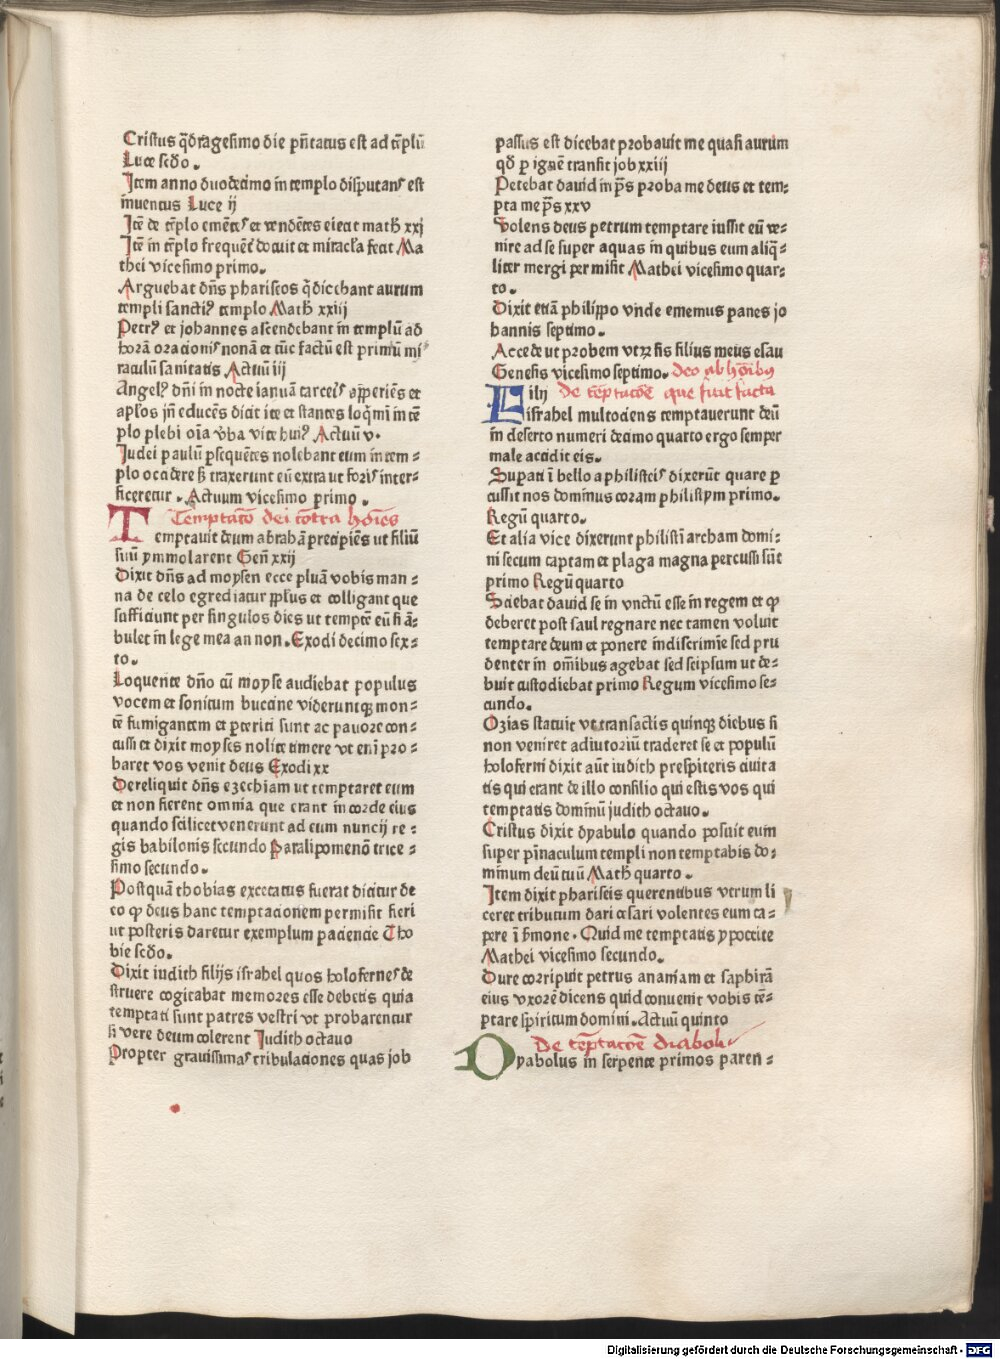 Cristus q̄dragesimo die pn̄tatus est ad tēplū
Luce scd̄o.
Item anno duodecimo in templo disputans est
inuentus Luce ij
Itē de tēplo emētes et vendētes eiecit math xxj
Itē in tēplo frequēt̄ docuit et mirac̄la fecit Ma
thei vicesimo primo.
Arguebat dn̄s phariseos q̄ dicebant aurum
templi sanctiꝰ templo Math xxiij
Petrꝰ et johannes ascendebant in templū ad
horā orationis nonā et tūc factū est primū mi
raculū sanitatis Actuū iij
Angelꝰ dn̄i in nocte ianuā carceris apperiēs et
aplos jn̄ educēs dicit ite et stantes loq̄mī in tē
plo plebi oīa v̄ba vite huiꝰ Actuū v.
Judei paulū ꝑsequētes nolebant eum in tem-
plo occidere sꝫ traxerunt eū extra ut foris inter-
ficeretur. Actuum vicesimo primo.
Temptacō dei cōtra hōies
Temptauit deum abrahā precipiēs ut filiū
suū ymmolarent Gen̄ xxij
Dixit dn̄s ad moysen ecce pluā vobis man-
na de celo egrediatur pplus et colligant que
sufficiunt per singulos dies ut temptē eū si ā-
bulet in lege mea an non. Exodi decimo sex-
to.
Loquente dn̄o cū moyse audiebat populus
vocem et sonitum buccine videruntqꝫ mon-
tē fumigantem et ꝑteriti sunt ac pauore con-
cussi et dixit moyses nolite timere vt enī pro-
baret vos venit deus Exodi xx
Dereliquit dn̄s ezechiam ut temptaret eum
et non fierent omnia que erant in corde eius
quando scilicet venerunt ad eum nuncij re-
gis babilonis secundo Paralipomenō trice-
simo secundo.
Postquā thobias excecatus fuerat dicitur de
eo ꝙ deus hanc temptacionem permisit fieri
ut posteris daretur exemplum paciencie Tho
bie scd̄o.
Dixit iudith filijs israhel quos holofernes de
struere cogitabat memores esse debetis quia
temptati sunt patres vestri vt probarentur
si vere deum colerent Judith octauo
Propter grauissimas tribulaciones quas job
passus est dicebat probauit me quasi aurum
qd̄ ꝑ ignē transit job xxiij
Petebat dauid in ps̄ proba me deus et tem-
pta me ps̄ xxv
Volens deus petrum temptare iussit eū ve-
nire ad se super aquas in quibus eum aliq̄-
liter mergi permisit Mathei vicesimo quar-
to.
Dixit etiā philippo vnde ememus panes jo
hannis septimo.
Accede ut probem vtꝝ sis filius meus esau
Genesis vicesimo septimo. deo ab hōibꝰ
De tēptacōe que fuit facta
Filij
israhel multociens temptauerunt deū
in deserto numeri decimo quarto ergo semper
male accidit eis.
Suꝑati ī bello a philisteis dixerūt quare ꝑ
cussit nos dominus coram philistijm primo.
Regū quarto.
Et alia vice dixerunt philistī archam domi-
ni secum captam et plaga magna percussi sūt
primo Regū quarto
Sciebat dauid se in vnctū esse in regem et ꝙ
deberet post saul regnare nec tamen voluit
temptare deum et ponere indiscrimīe sed pru
denter in om̄ibus agebat sed seipsum ut de-
buit custodiebat primo Regum vicesimo se-
cundo.
Ozias statuit vt transactis quinqꝫ diebus si
non veniret adiutoriū traderet se et populū
holoferni dixit aūt iudith prespiteris ciuita
tis qui erant de illo consilio qui estis vos qui
temptatis dominū judith octauo.
Cristus dixit dyabulo quando posuit eum
super pīnaculum templi non temptabis do-
minum deū tuū Math quarto.
Item dixit phariseis querentibus vtrum li
ceret tributum dari cesari volentes eum ca-
pere ī ẜmone. Quid me temptatis ypocrite
Mathei vicesimo secundo.
Dure corripuit petrus ananiam et saphirā
eius vxorē dicens quid conuenit vobis tē-
ptare spiritum domini. Actuū quinto
De tēptacōe diaboli
Dyabolus in serpente primos paren-
Digitalisierung gefördert durch die Deutsche Forschungsgemeinschaft - DFG